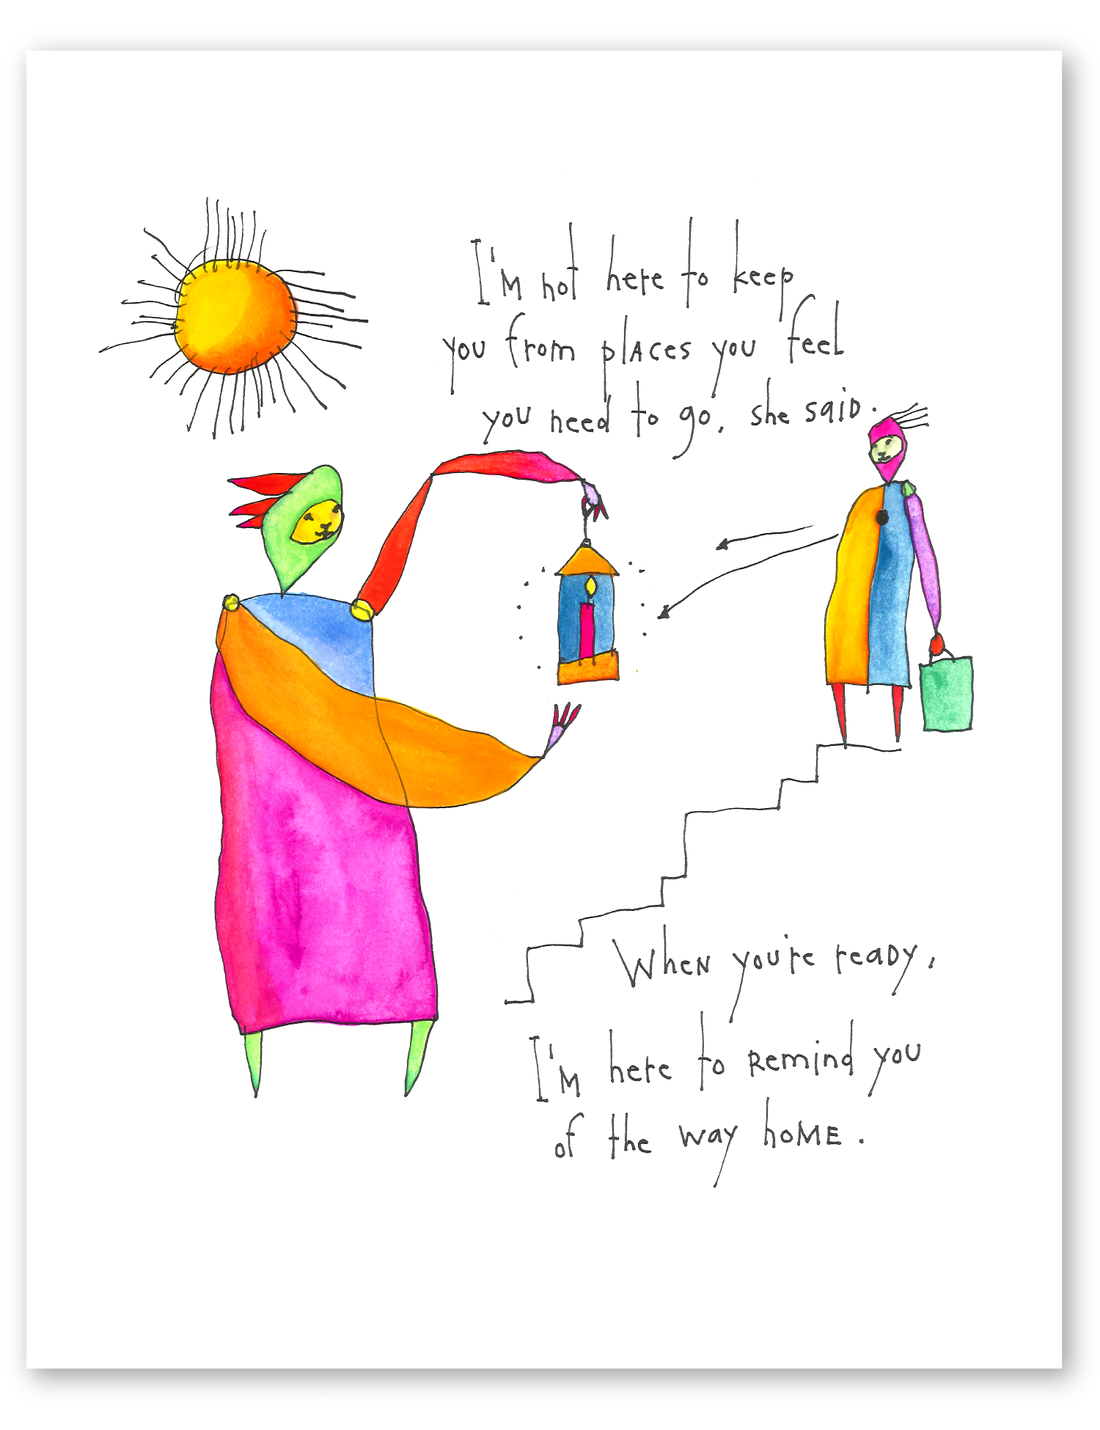 I'm not here to keep
you from plAces you feel
you need to go, she saiD.
WheN you're reaDy,
I'm here to Remind you
of the way hoME.